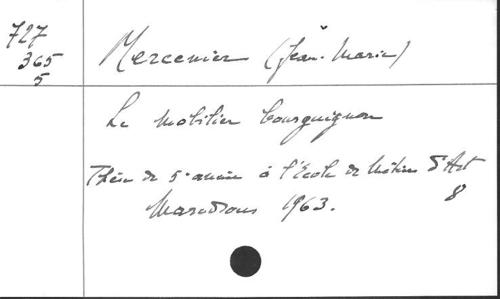 727
365
5
Mercenier (Jean-Marie)
Le mobilier bourguignon
Thèse de 5e année à l'Ecole de Métiers d'Art
Maredsous 1963.
8